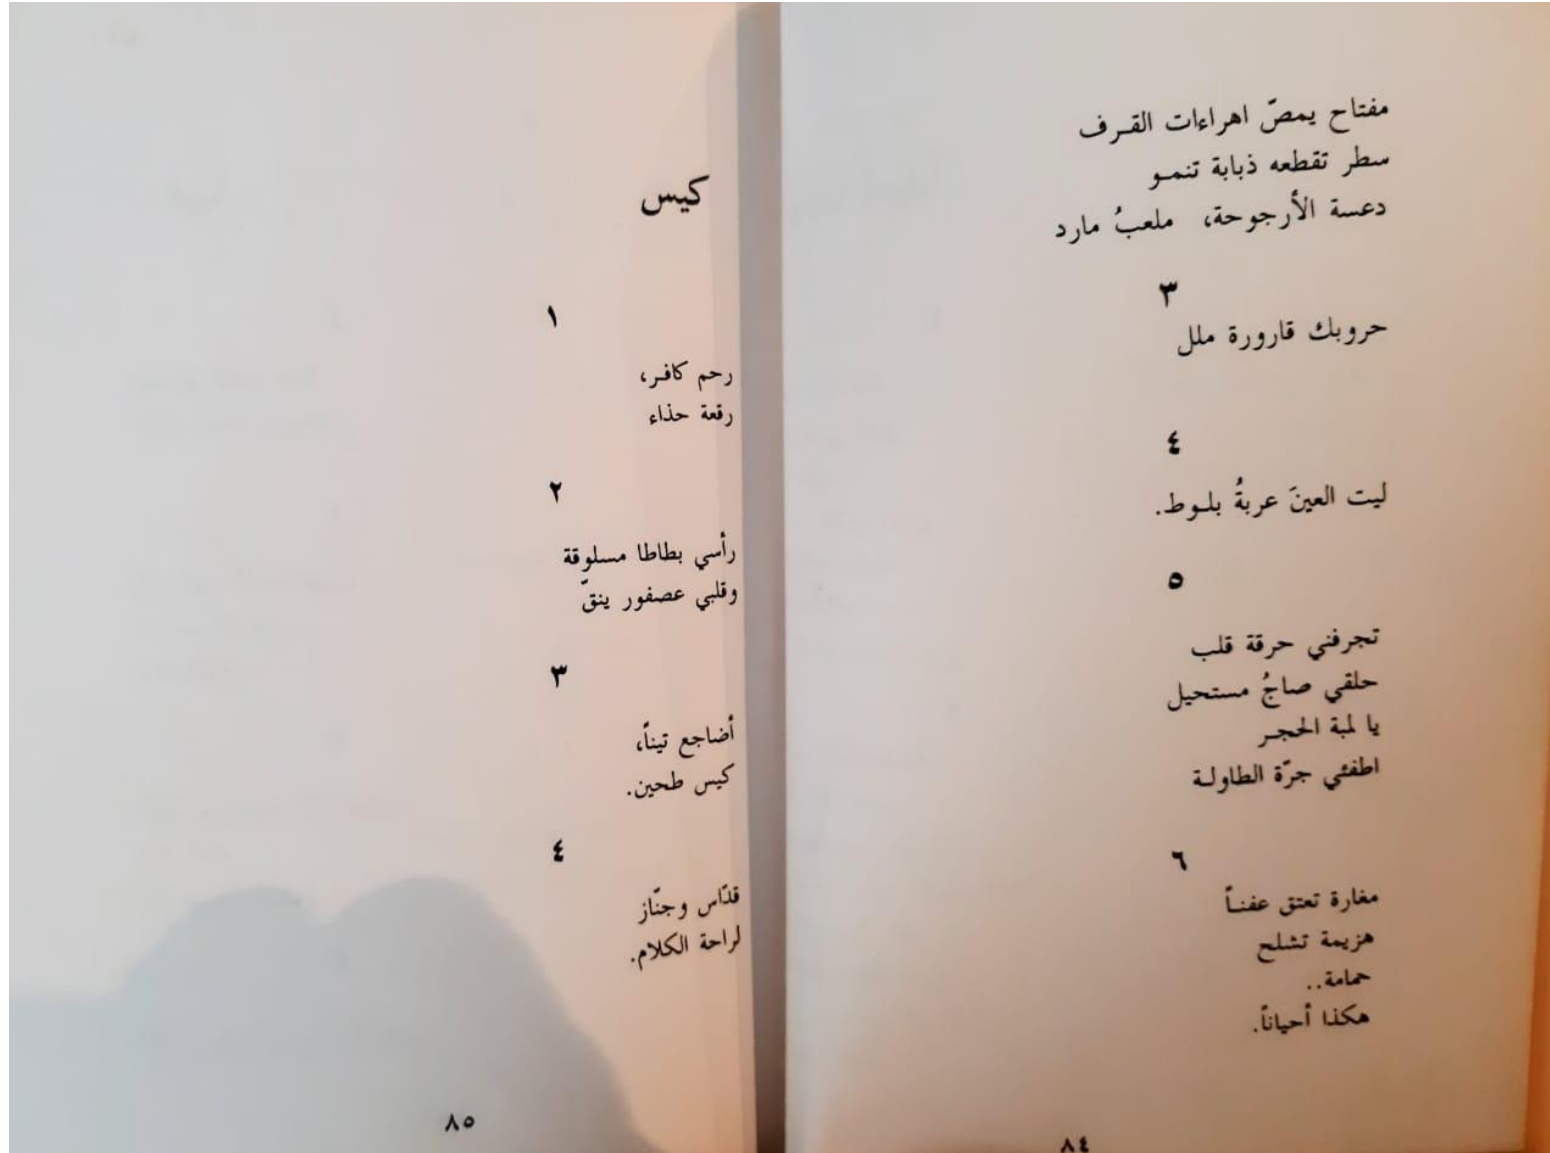 مفتاح يمصّ اهراءات القرف
سطر تقطعه ذبابة تنمو
دعسة الأرجوحة، ملعبُ مارد
٣
حروبك قارورة ملل
٤
ليت العينَ عربةُ بلوط.
٥
تجرفني حرقة قلب
حلقي صاجُ مستحيل
يا لمبة الحجر
اطفئي جرّة الطاولة
٦
مغارة تعتق عفناً
هزيمة تشلح
حمامة..
هكذا أحياناً.
٨٤
كيس
١
رحم كافر،
رقعة حذاء
٢
رأسي بطاطا مسلوقة
وقلبي عصفور ينقّ
٣
أضاجع تيناً،
كيس طحين.
٤
قدّاس وجنّاز
لراحة الكلام.
٨٥